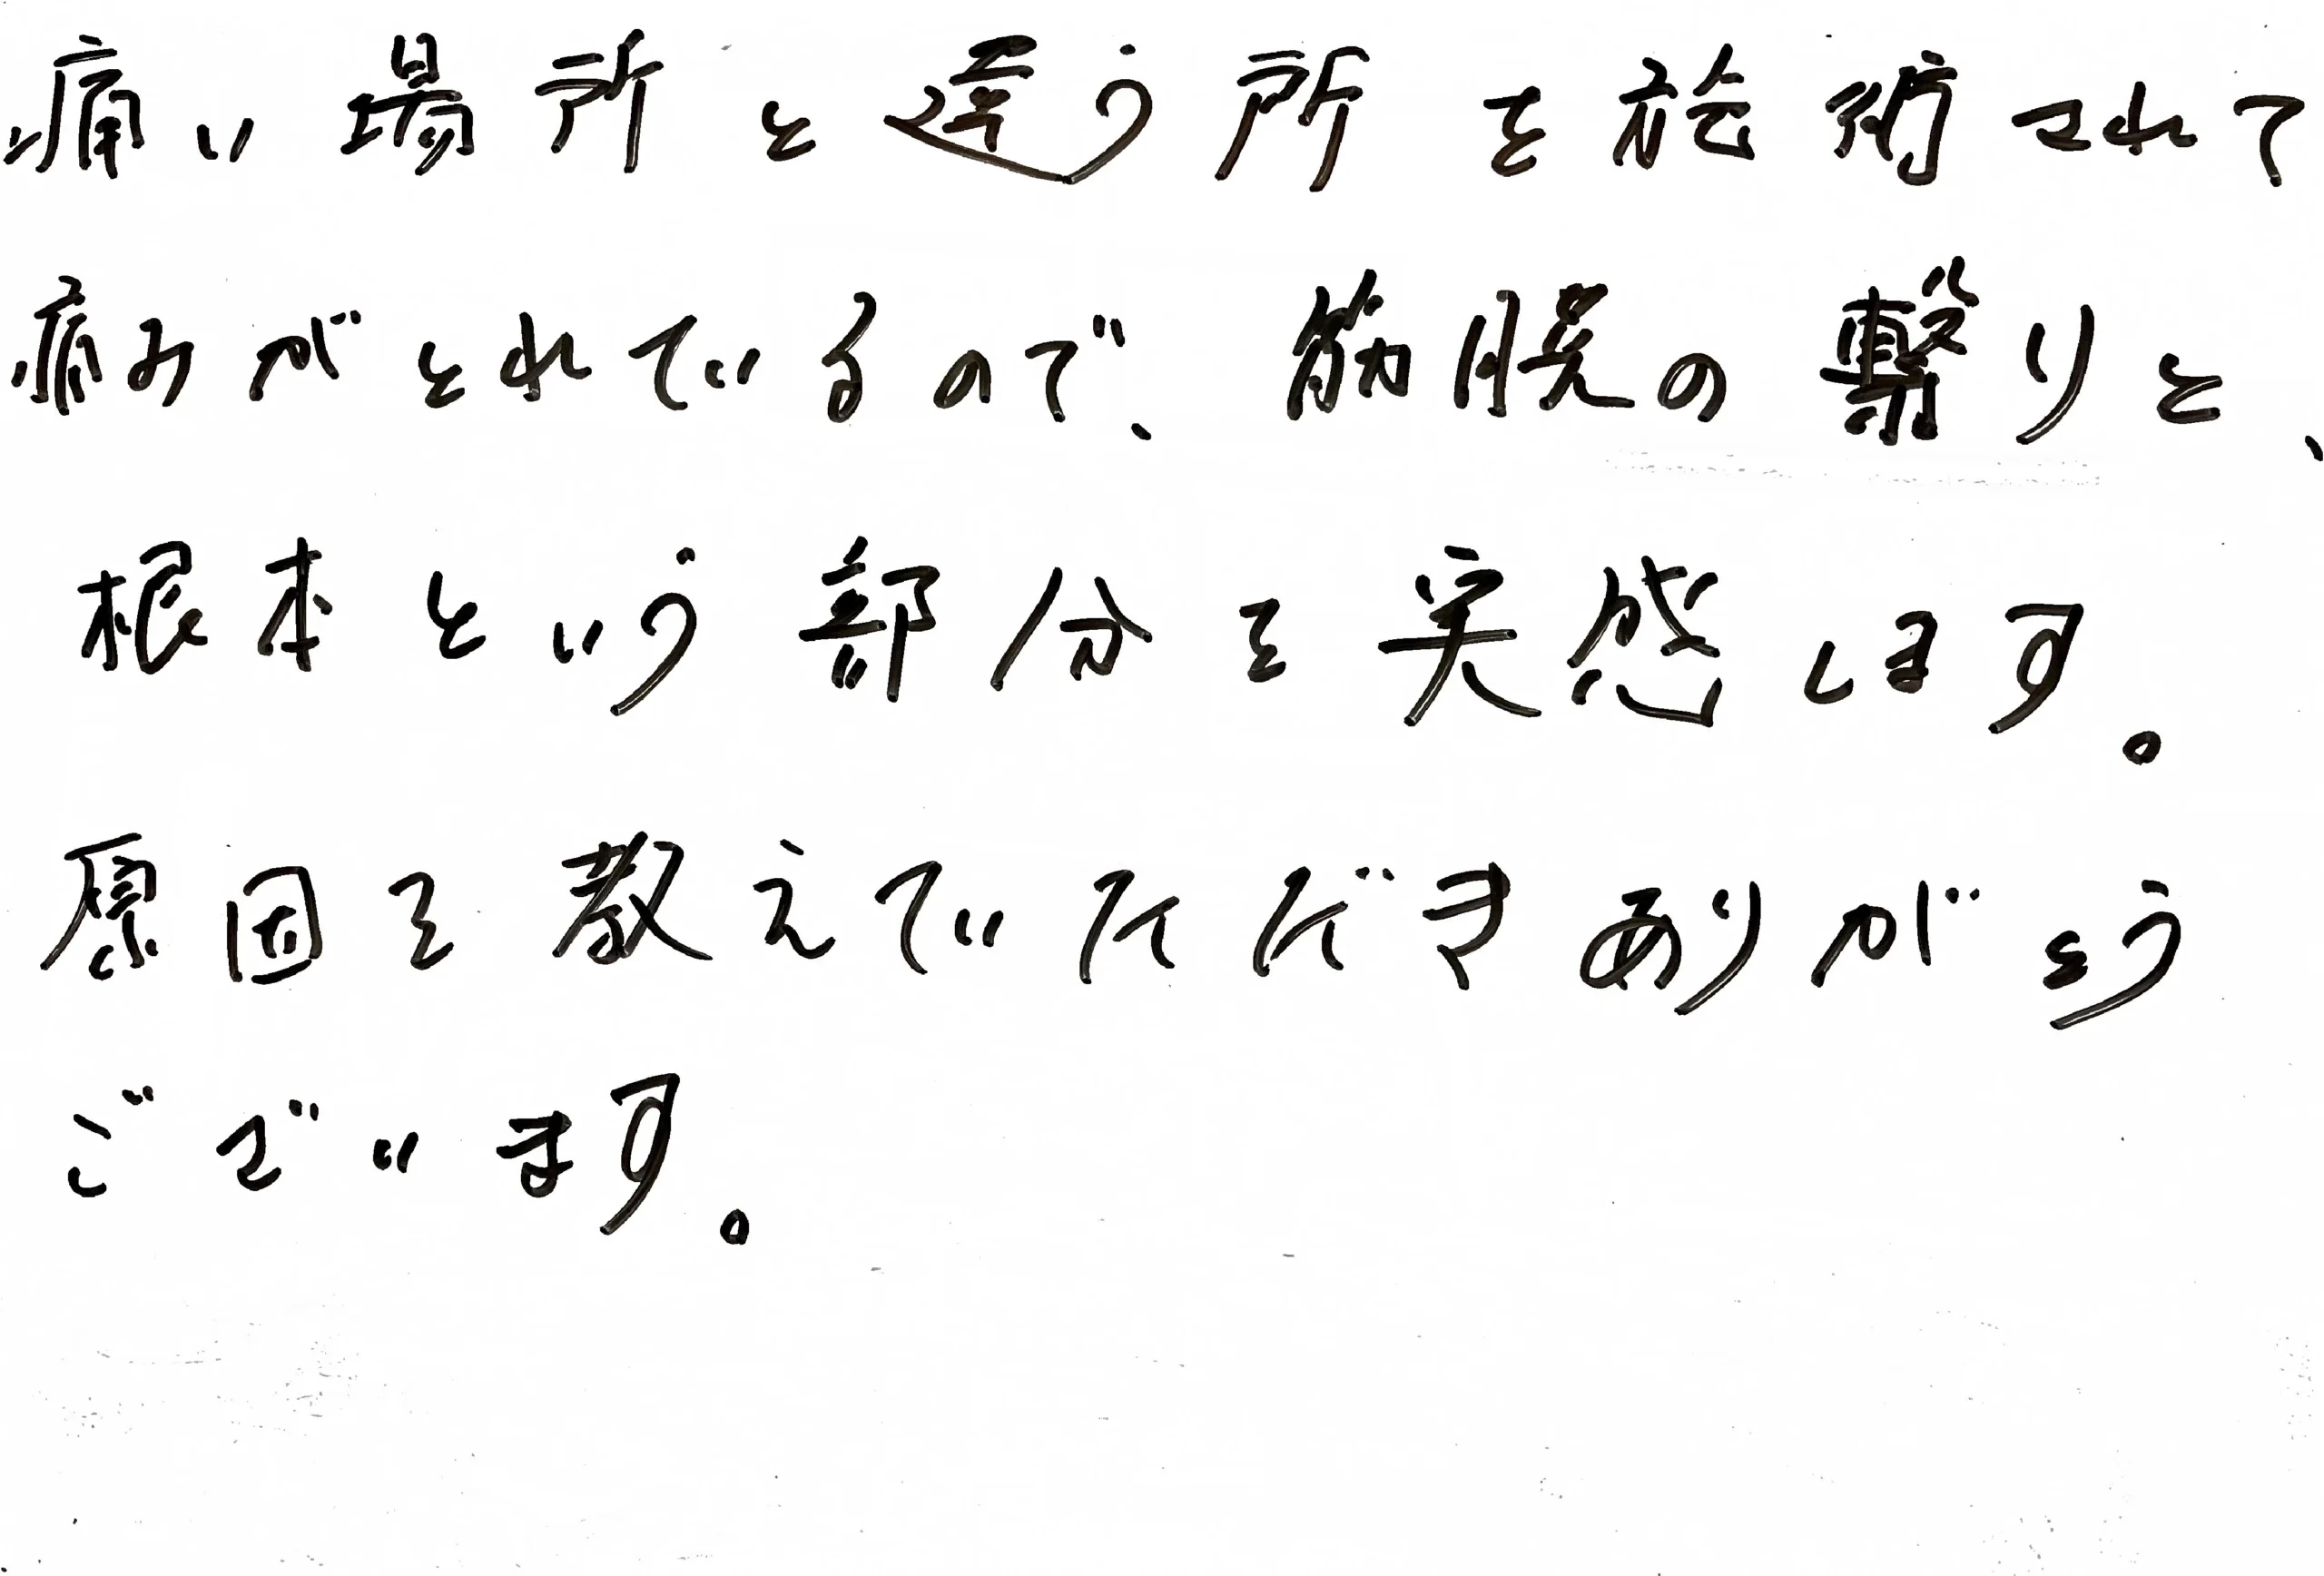 痛い場所と違う所を施術されて
痛みがとれているので、筋膜の繋りと、
根本という部分を実感します。
原因を教えていただきありがとう
ございます。